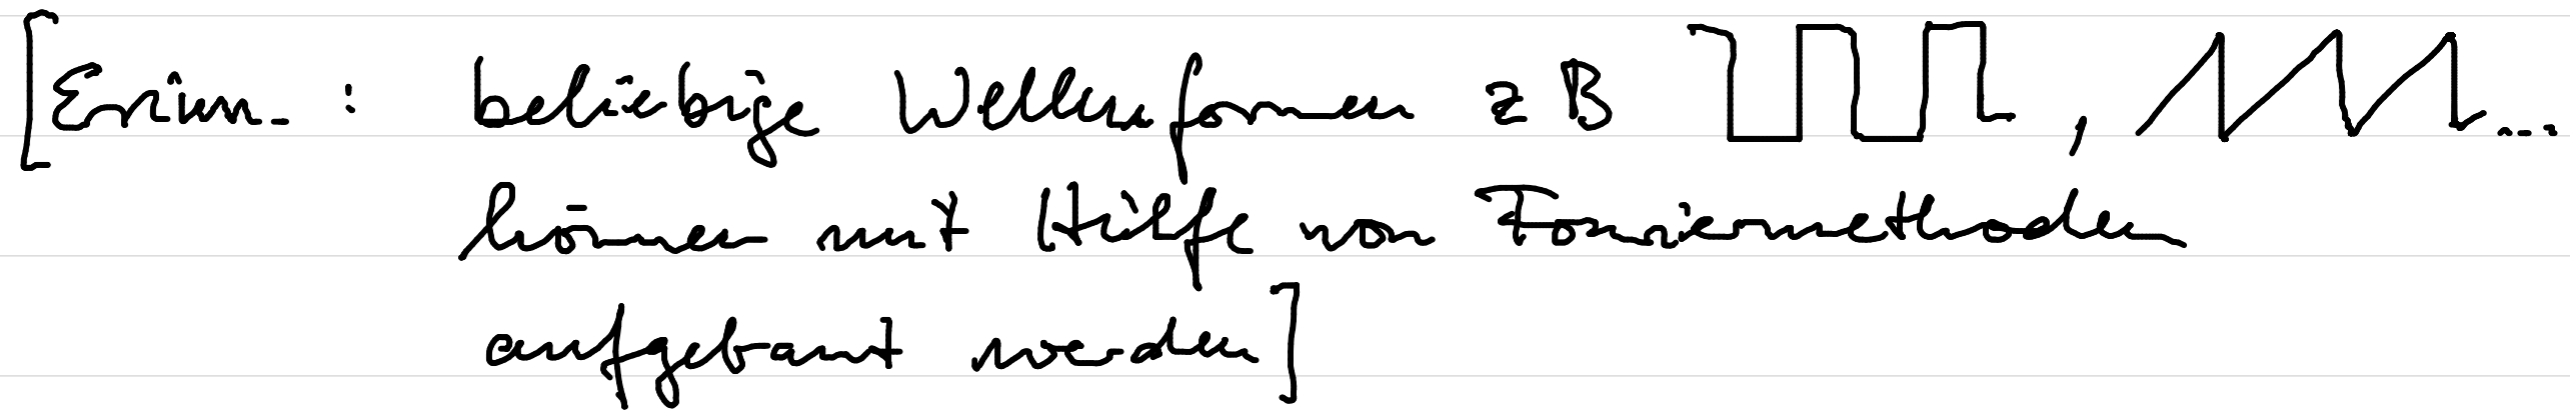 [Erinn. : beliebige Wellenformen z B , ...
können mit Hilfe von Fouriermethoden
aufgebaut werden]